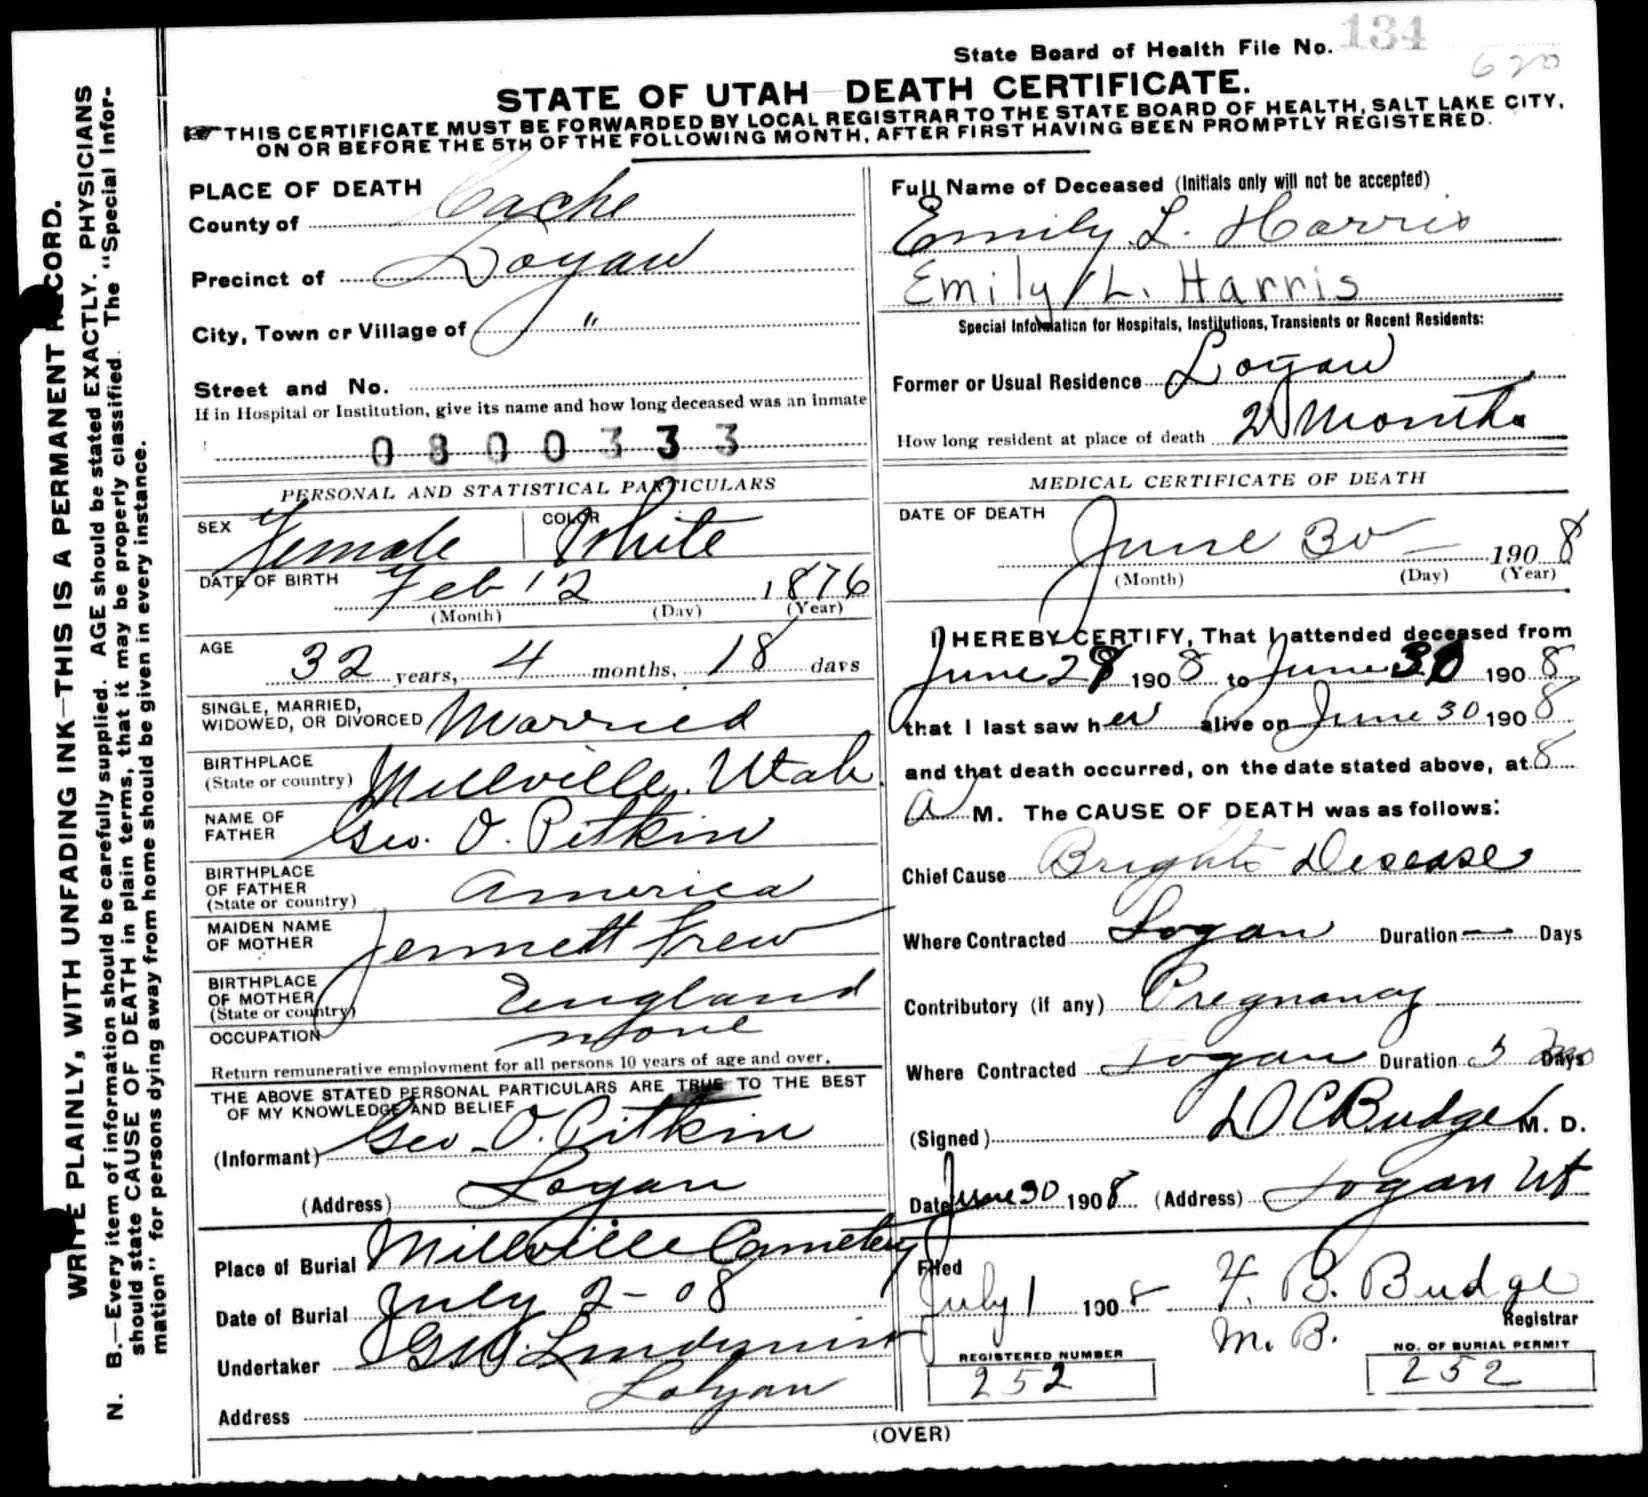 State Board of Health File No. 134
620
STATE OF UTAH—DEATH CERTIFICATE.
THIS CERTIFICATE MUST BE FORWARDED BY LOCAL REGISTRAR TO THE STATE BOARD OF HEALTH, SALT LAKE CITY,
ON OR BEFORE THE 5TH OF THE FOLLOWING MONTH, AFTER FIRST HAVING BEEN PROMPTLY REGISTERED.
WRITE PLAINLY, WITH UNFADING INK—THIS IS A PERMANENT RECORD.
N. B.—Every item of information should be carefully supplied. AGE should be stated EXACTLY. PHYSICIANS
should state CAUSE OF DEATH in plain terms, that it may be properly classified. The "Special Infor-
mation" for persons dying away from home should be given in every instance.
PLACE OF DEATH
County of Cache
Precinct of Logan
City, Town or Village of "
Street and No.
If in Hospital or Institution, give its name and how long deceased was an inmate
0800333
PERSONAL AND STATISTICAL PARTICULARS
SEX Female COLOR White
DATE OF BIRTH Feb 12 1876
(Month) (Day) (Year)
AGE 32 years, 4 months, 18 days
SINGLE, MARRIED,
WIDOWED, OR DIVORCED Married
BIRTHPLACE
(State or country) Millville, Utah
NAME OF
FATHER Geo. O. Pitkin
BIRTHPLACE
OF FATHER
(State or country) America
MAIDEN NAME
OF MOTHER Jennett Frew
BIRTHPLACE
OF MOTHER
(State or country) England
OCCUPATION none
Return remunerative employment for all persons 10 years of age and over.
THE ABOVE STATED PERSONAL PARTICULARS ARE TRUE TO THE BEST
OF MY KNOWLEDGE AND BELIEF
(Informant) Geo. O. Pitkin
(Address) Logan
Place of Burial Millville Cemetery
Date of Burial July 2-08
Undertaker G W Lindquist
Address Logan
Full Name of Deceased (Initials only will not be accepted)
Emily L. Harris
Emily L. Harris
Special Information for Hospitals, Institutions, Transients or Recent Residents:
Former or Usual Residence Logan
How long resident at place of death 2 Months
MEDICAL CERTIFICATE OF DEATH
DATE OF DEATH
June 30 1908
(Month) (Day) (Year)
I HEREBY CERTIFY, That I attended deceased from
June 28 1908 to June 30 1908
that I last saw her alive on June 30 1908
and that death occurred, on the date stated above, at 8
A M. The CAUSE OF DEATH was as follows:
Chief Cause Brights Disease
Where Contracted Logan Duration — Days
Contributory (if any) Pregnancy
Where Contracted Logan Duration 5 mo Days
(Signed) D C Budge M. D.
Date June 30 1908 (Address) Logan Ut
Filed
July 1 1908 F. B. Budge
Registrar
M. B.
REGISTERED NUMBER
252
NO. OF BURIAL PERMIT
252
(OVER)